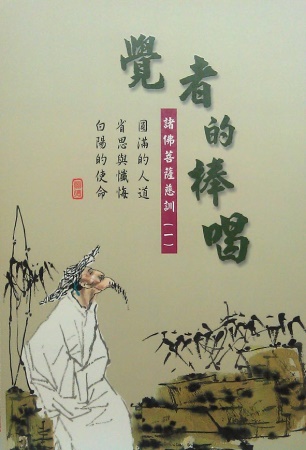 覺者的棒喝
諸佛菩薩慈訓（一）
圓滿的人道
省思與懺悔
白陽的使命